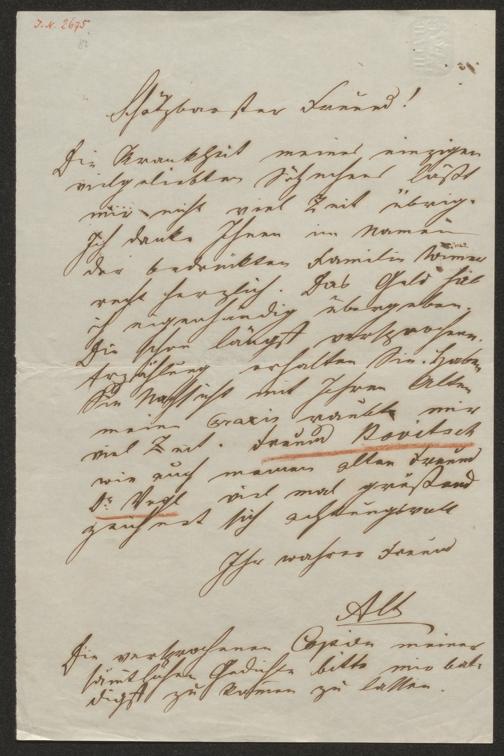 J.N. 2675
Schätzbarster Freund!
Die Krankheit meines einzigen
vielgeliebten Söhnchens läßt
mir nicht viel Zeit übrig.
Ich danke Ihnen im Namen
der bedrückten Familie
recht herzlich. Das Geld hab
ich eigenhändig übergeben.
Die schon längst versprochene
Erzählung erhalten Sie. Haben
Sie Nachsicht mit Ihren Alten
meine Praxis raubt mir
viel Zeit. Freund Bovitsch
wie auch meinen alten Freund
Dr Vogl viel mal grüßend
zeichnet sich achtungsvoll
Ihr wahrer Freund
Alt
Die versprochenen Copien meiner
sämtlichen Gedichte bitte mir bal-
digst zu kommen zu lassen.